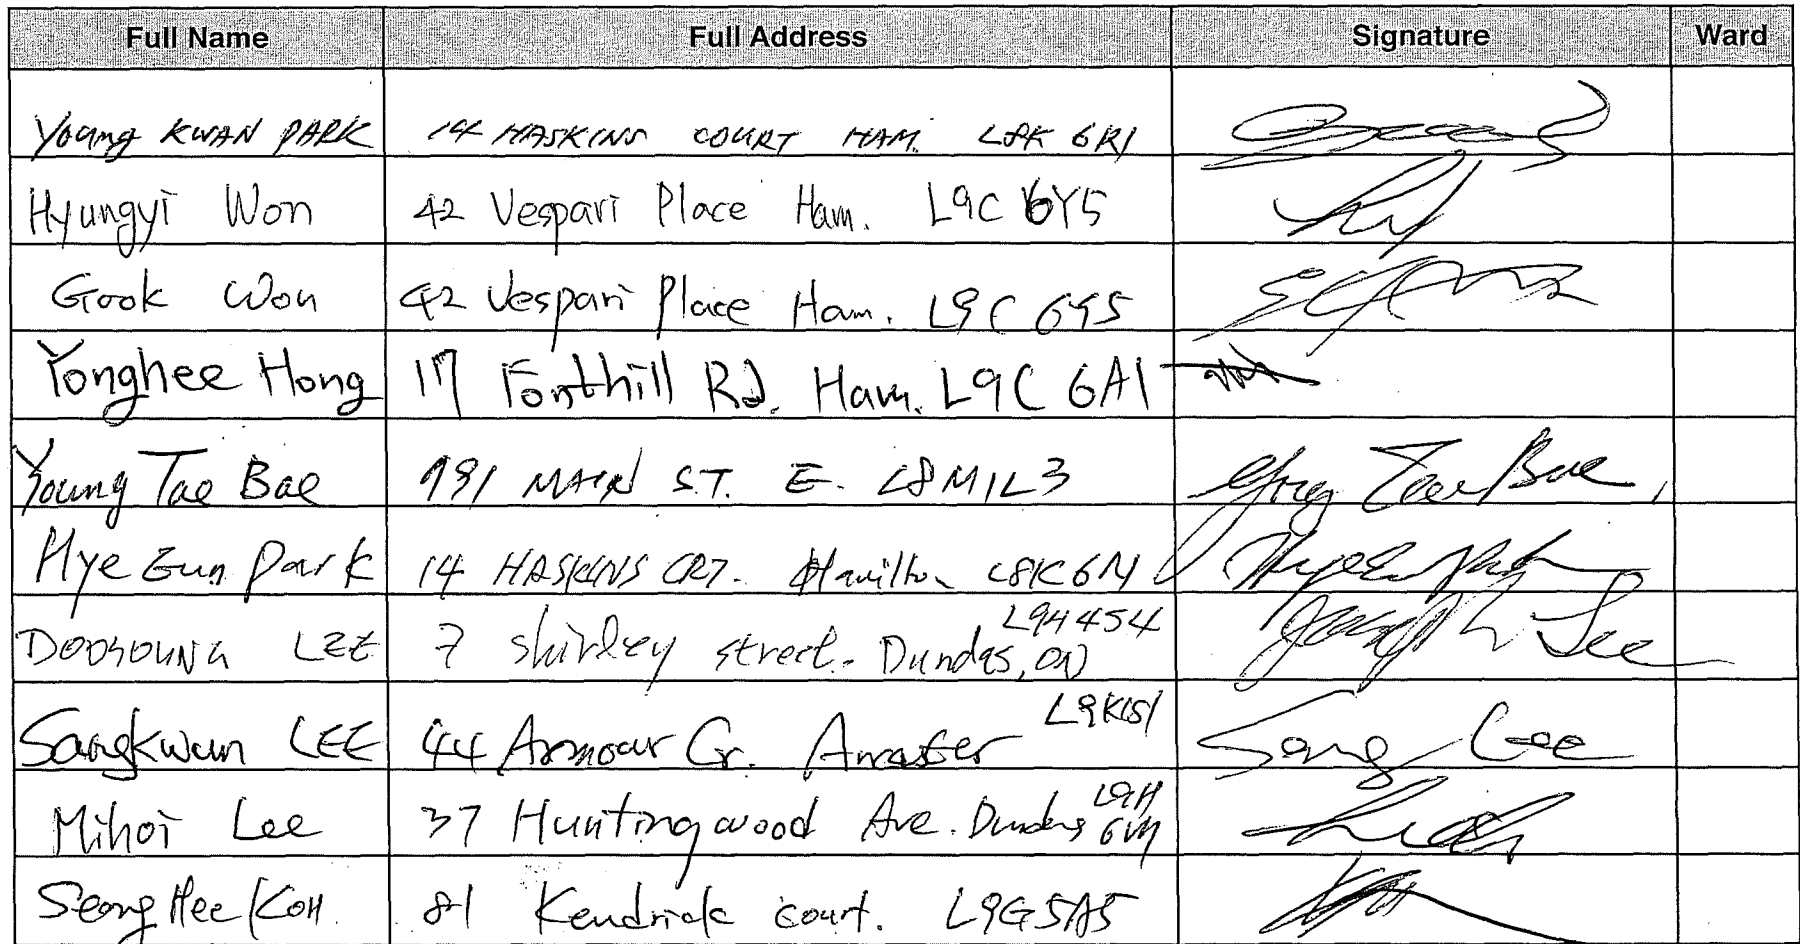 Full Name Full Address Signature Ward
Young KWAN PARK 14 HASKINS COURT HAM. L8K 6R1
Hyungyi Won 42 Vespari Place Ham. L9C 6Y5
Gook Won 42 Vespari Place Ham. L9C 6Y5
Yonghee Hong 17 Fonthill Rd. Ham. L9C 6A1
Young Tae Bae 991 MAIN ST. E. L8M1L3 Young Tae Bae
Hye Eun Park 14 HASKINS CRT. Hamilton L8K6
L9H 4S4
DOOYOUNG LEE 7 shirley street. Dundas, ON Joseph Lee
L9K1S1
Sangkwun LEE 44 Armour Cr. Ancaster Sang Lee
L9H
Mihoi Lee 37 Huntingwood Ave. Dundas
Seong Hee KOH 81 Kendrick court. L9G5A5